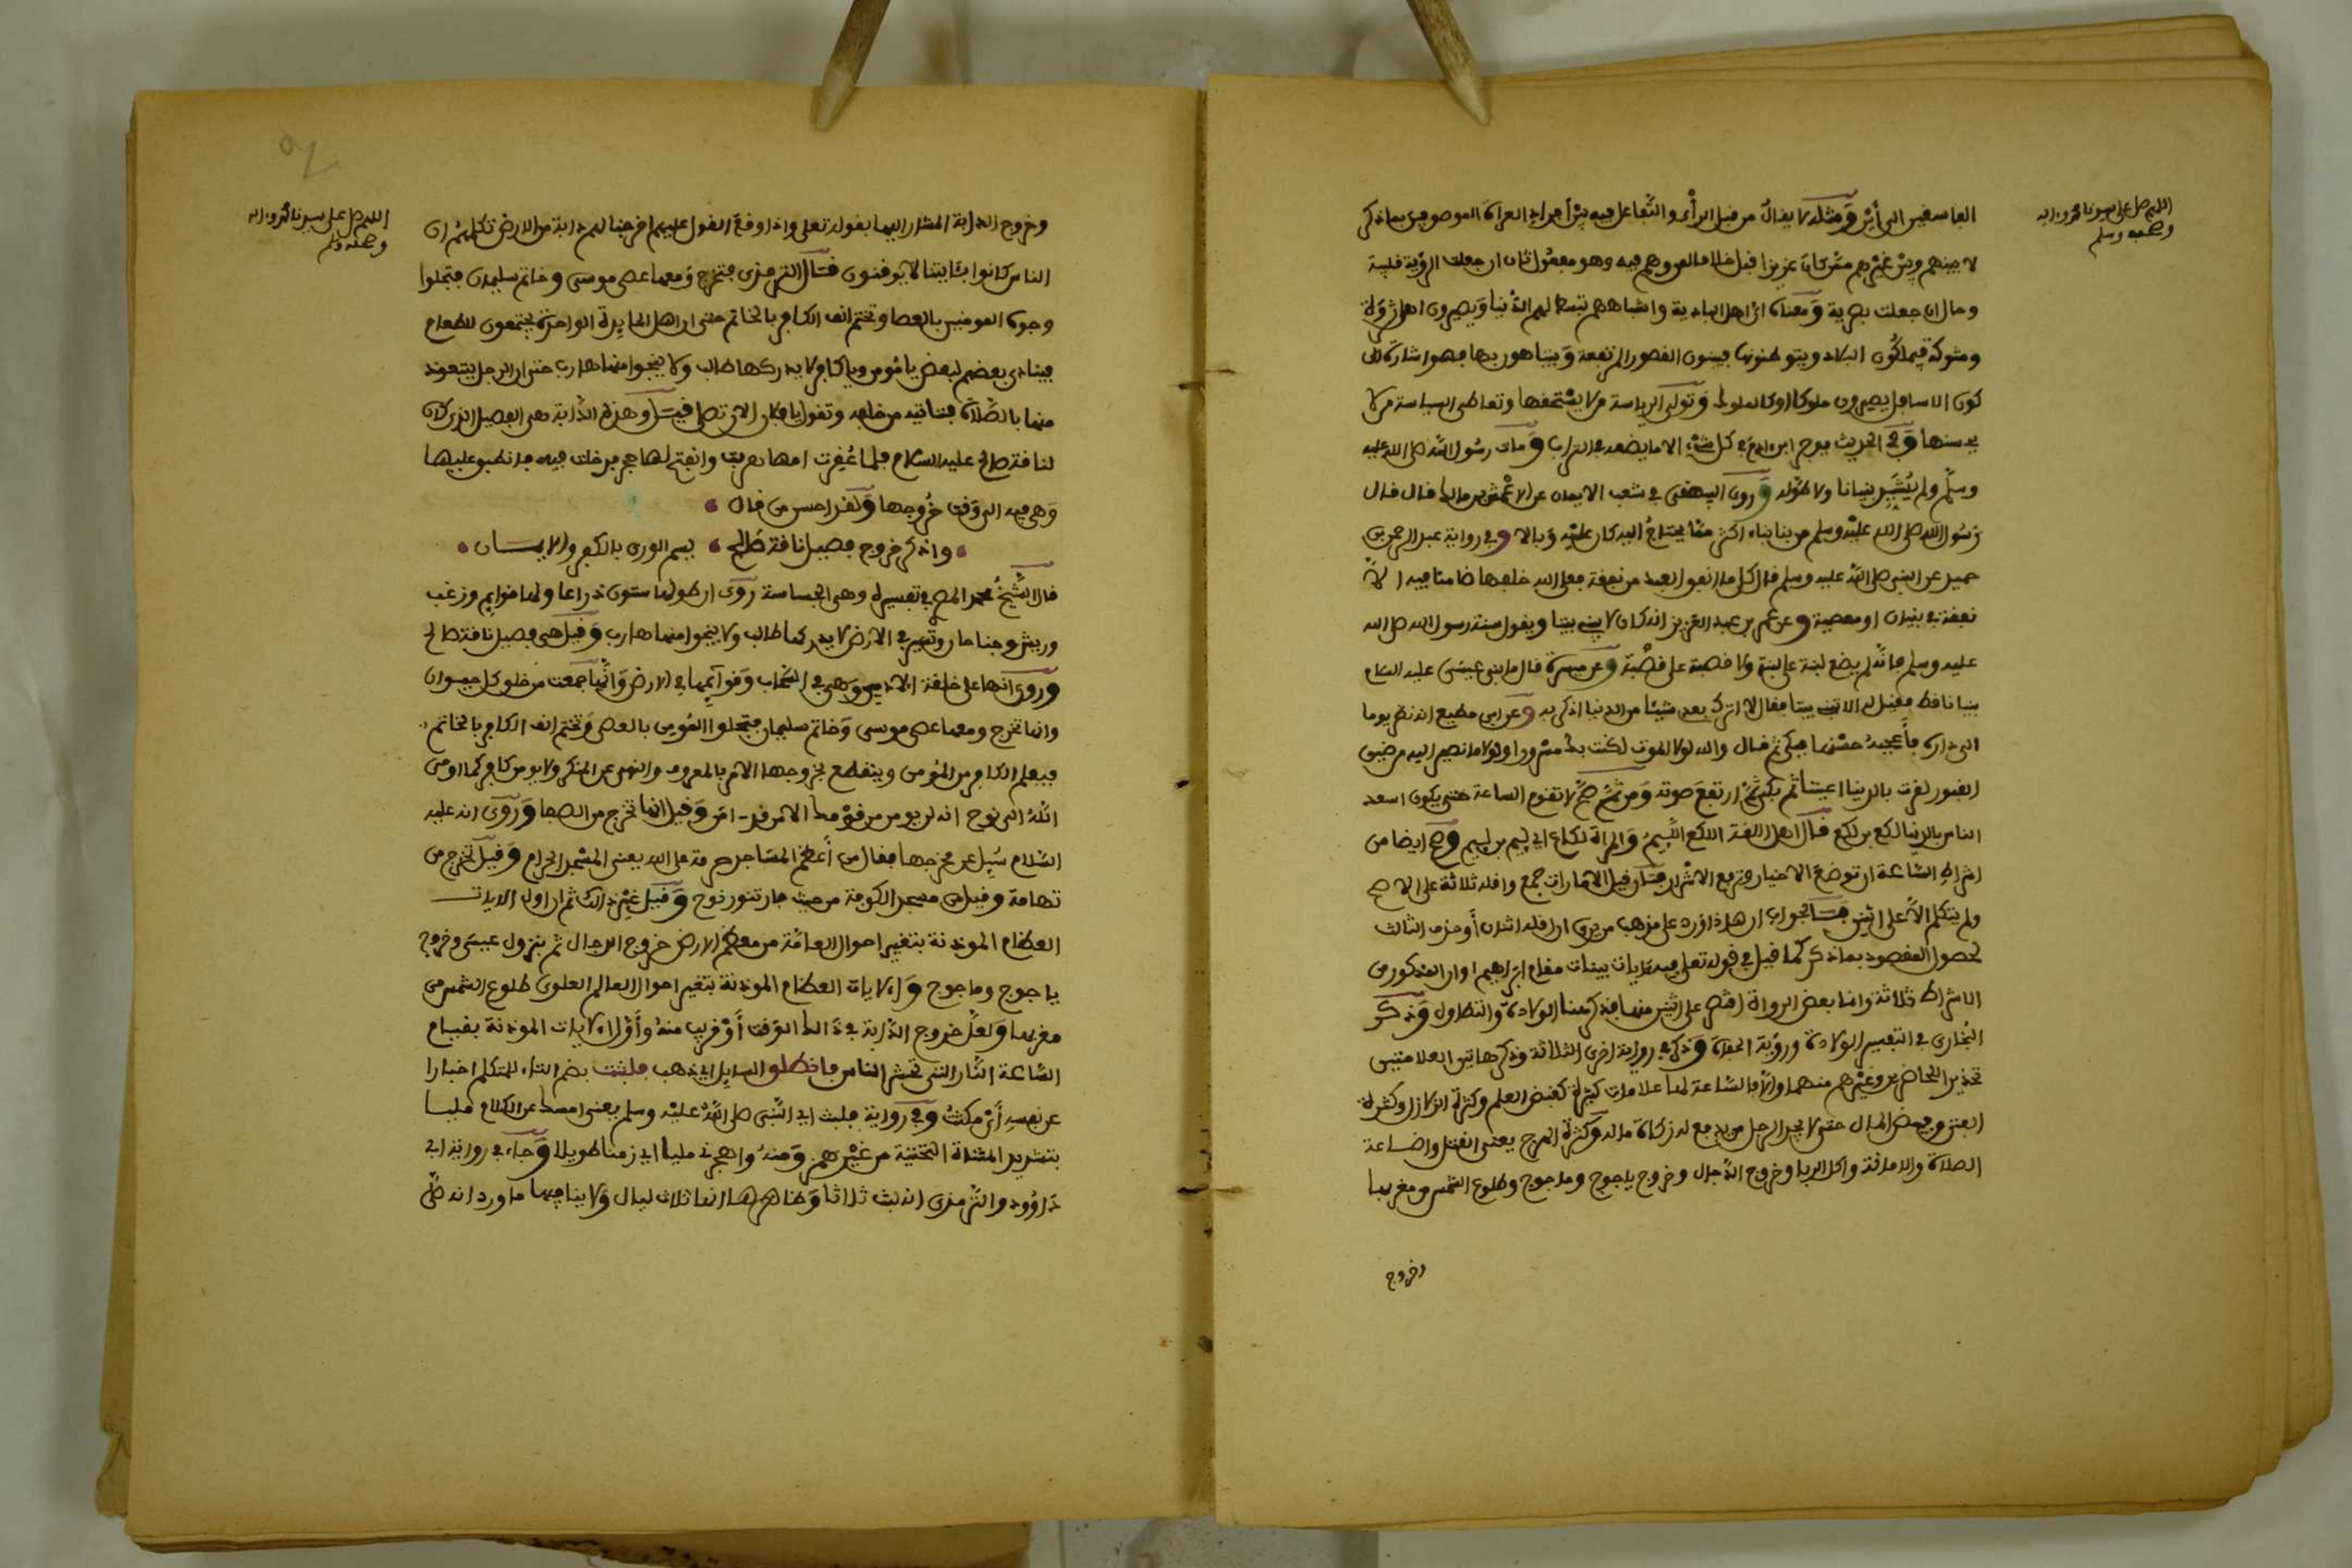 اللهم صل على سيدنا محمد وءاله
وصحبه وسلم
الفاسفين الى أين ومثله لا يقال من قبل الرأى والتفاعل فيه بين أفراد العراة الموصوفين بما ذكر
لا بينهم وبين غيرهم ممن كان عزيزا قبل خلافا لمن وهم فيه وهو مفعول ثان ان جعلت الرؤية قلبية
وحال ان جعلت بصرية ومعناه ان اهل البادية واشباههم تبسط لهم الدنيا ويصيرون اهل ثروة
وشوكة فيملكون البلاد ويتوطنونها فيبنون القصور المرتفعة ويتباهون بها فهو اشارة الى
كون الاسافل يصيرون ملوكا او كالملوك وتولى الرياسة من لا يستحقها وتعاطى السياسة من لا
يحسنها وفى الحديث يوجر ابن ءادم فى كل شىء الا ما يضعه فى التراب ومات رسول الله صلى الله عليه
وسلم ولم يشيد بنيانا ولا طوله وروى البيهقى فى شعب الايمان عن الاعمش بن مالك قال قال
رسول الله صلى الله عليه وسلم من بنا بناء اكثر مما يحتاج اليه كان عليه وبالا وفى رواية عبد الرحمن بن
حميد عن النبى صلى الله عليه وسلم قال كل ما انفق العبد من نفقة فعلى الله خلفها ضامنا فيه الا
نفقة فى بنيان او معصية وعن عمر بن عبد العزيز انه كان لا يبنى بيتا ويقول سنة رسول الله صلى الله
عليه وسلم فانه لم يضع لبنة على لبنة ولا قصبة على قصبة وعن ميسرة قال ما بنى عيسى عليه السلام
بنيانا قط فقيل له الا تبنى بيتا فقال لا اترك بعدى شيئا من الدنيا اذكر به وعن ابن مطيع انه نظر يوما
الى داره فأعجبه حسنها فبكى ثم قال والله لولا الموت لكنت بك مسرورا ولولا ما نصير اليه من ضيق
القبور لقرت بالدنيا اعيننا ثم بكى ثم ارتفع صوته ومن ثم صح لا تقوم الساعة حتى يكون اسعد
الناس بالدنيا لكع بن لكع قال اهل اللغة اللكع اللئيم والمراة لكاع اى ليم بن ليم وصح ايضا من
اشراط الساعة ان توضع الاخيار وترفع الاشرار فان قيل الامارات جمع واقله ثلاثة على الاصح
ولم يتكلم الا على اثنين فالجواب ان هذا ورد على مذهب من يرى ان اقله اثنان أو حذف الثالث
لحصول المقصود بما ذكر كما قيل فى قوله تعلى فيه ءايات بينات مقام ابراهيم او ان المذكور من
الاشراط ثلاثة وانما بعض الرواة اقتصر على اثنين منها فذكر هنا الولادة والتطاول وذكر
البخارى فى التفسير الولادة ورؤية الحفاة وذكر فى رواية اخرى الثلاثة وذكر هاتين العلامتين
تحذير الحاضرين وغيرهم منهما والا فالساعة لها علامات كثيرة كقبض العلم وكثرة الزلازل وكثرة
الفتن وفيض المال حتى لا يجد الرجل من يدفع له زكاة ماله وكثرة الهرج يعنى القتل واضاعة
الصلاة والامانة واكل الربا وخروج الدجال وخروج ياجوج وماجوج وطلوع الشمس من مغربها
وخروج
اللهم صل على سيدنا محمد وءاله
وصحبه وسلم
وخروج الدابة المشار اليها بقوله تعلى واذا وقع القول عليهم اخرجنا لهم دابة من الارض تكلمهم ان
الناس كانوا بئايتنا لا يوقنون قال الترمذى فتخرج ومعها عصى موسى وخاتم سليمان فتجلوا
وجوه المومنين بالعصا وتختم انف الكافر بالخاتم حتى ان اهل المايدة الواحدة يجتمعون للطعام
فينادى بعضهم لبعض يا مومن ويا كافر لا يدركها طالب ولا ينجوا منها هارب حتى ان الرجل يتعوذ
منها بالصلاة فتاتيه من خلفه وتقول يا فلان الان تصلى قيل وهذه الدابة هى الفصيل الذى كان
لناقة صالح عليه السلام فلما عقرت امها هربت وانفتح لها حجر فدخلت فيه فانطبق عليها
وهى فيه الى وقت خروجها ولقد احسن من قال
واذكر خروج فصيل ناقة صالح يسم الورى بالكفر والايمان
قال الشيخ محمد المصرى فى تفسيره وهى الجساسة روى ان طولها ستون ذراعا ولها قوايم وزغب
وريش وجناحان وتسير فى الارض لا يدركها طالب ولا ينجوا منها هارب وقيل هى فصيل ناقة صالح
وروى انها على خلقة الادمى وهى فى السحاب وقوآيمها فى الارض وانها جمعت من خلق كل حيوان
وانها تخرج ومعها عصى موسى وخاتم سليمان فتجلوا المومن بالعصى وتختم انف الكافر بالخاتم
فيعلم الكافر من المومن وينقطع بخروجها الامر بالمعروف والنهى عن المنكر ولا يومن كافر كما اوحى
الله الى نوح انه لن يومن من قومك الا من قد ءامن وقيل انها تخرج من الصفا وروى انه عليه
السلام سيل عن مخرجها فقال من أعظم المساجد حرمة على الله يعنى المسجد الحرام وقيل تخرج من
تهامة وقيل من مسجد الكوفة من حيث فار تنور نوح وقيل غير ذالك ثم ان اول الايات
العظام الموذنة بتغير احوال العامة من معظم الارض خروج الدجال ثم بنزول عيسى وخروج
ياجوج وماجوج واول ايات العظام الموذنة بتغير احوال العالم العلوى طلوع الشمس من
مغربها ولعل خروج الدابة فى ذالك الوقت أو قريب منه وأول الايات الموذنة بقيام
الساعة النار التى تحشر الناس فانطلق السايل اى ذهب فلبثت بضم التاء للمتكلم اخبارا
عن نفسه أى مكثت وفى رواية فلبث اى النبى صلى الله عليه وسلم يعنى امسك عن الكلام مليا
بتشديد المثناة التحتية من غير همز ومنه واهجرنى مليا اى زمنا طويلا وجاء فى رواية ابى
داوود والترمذى انه لبث ثلاثا وظاهرها انها ثلاث ليال ولا ينافيها ما ورد انه صلى